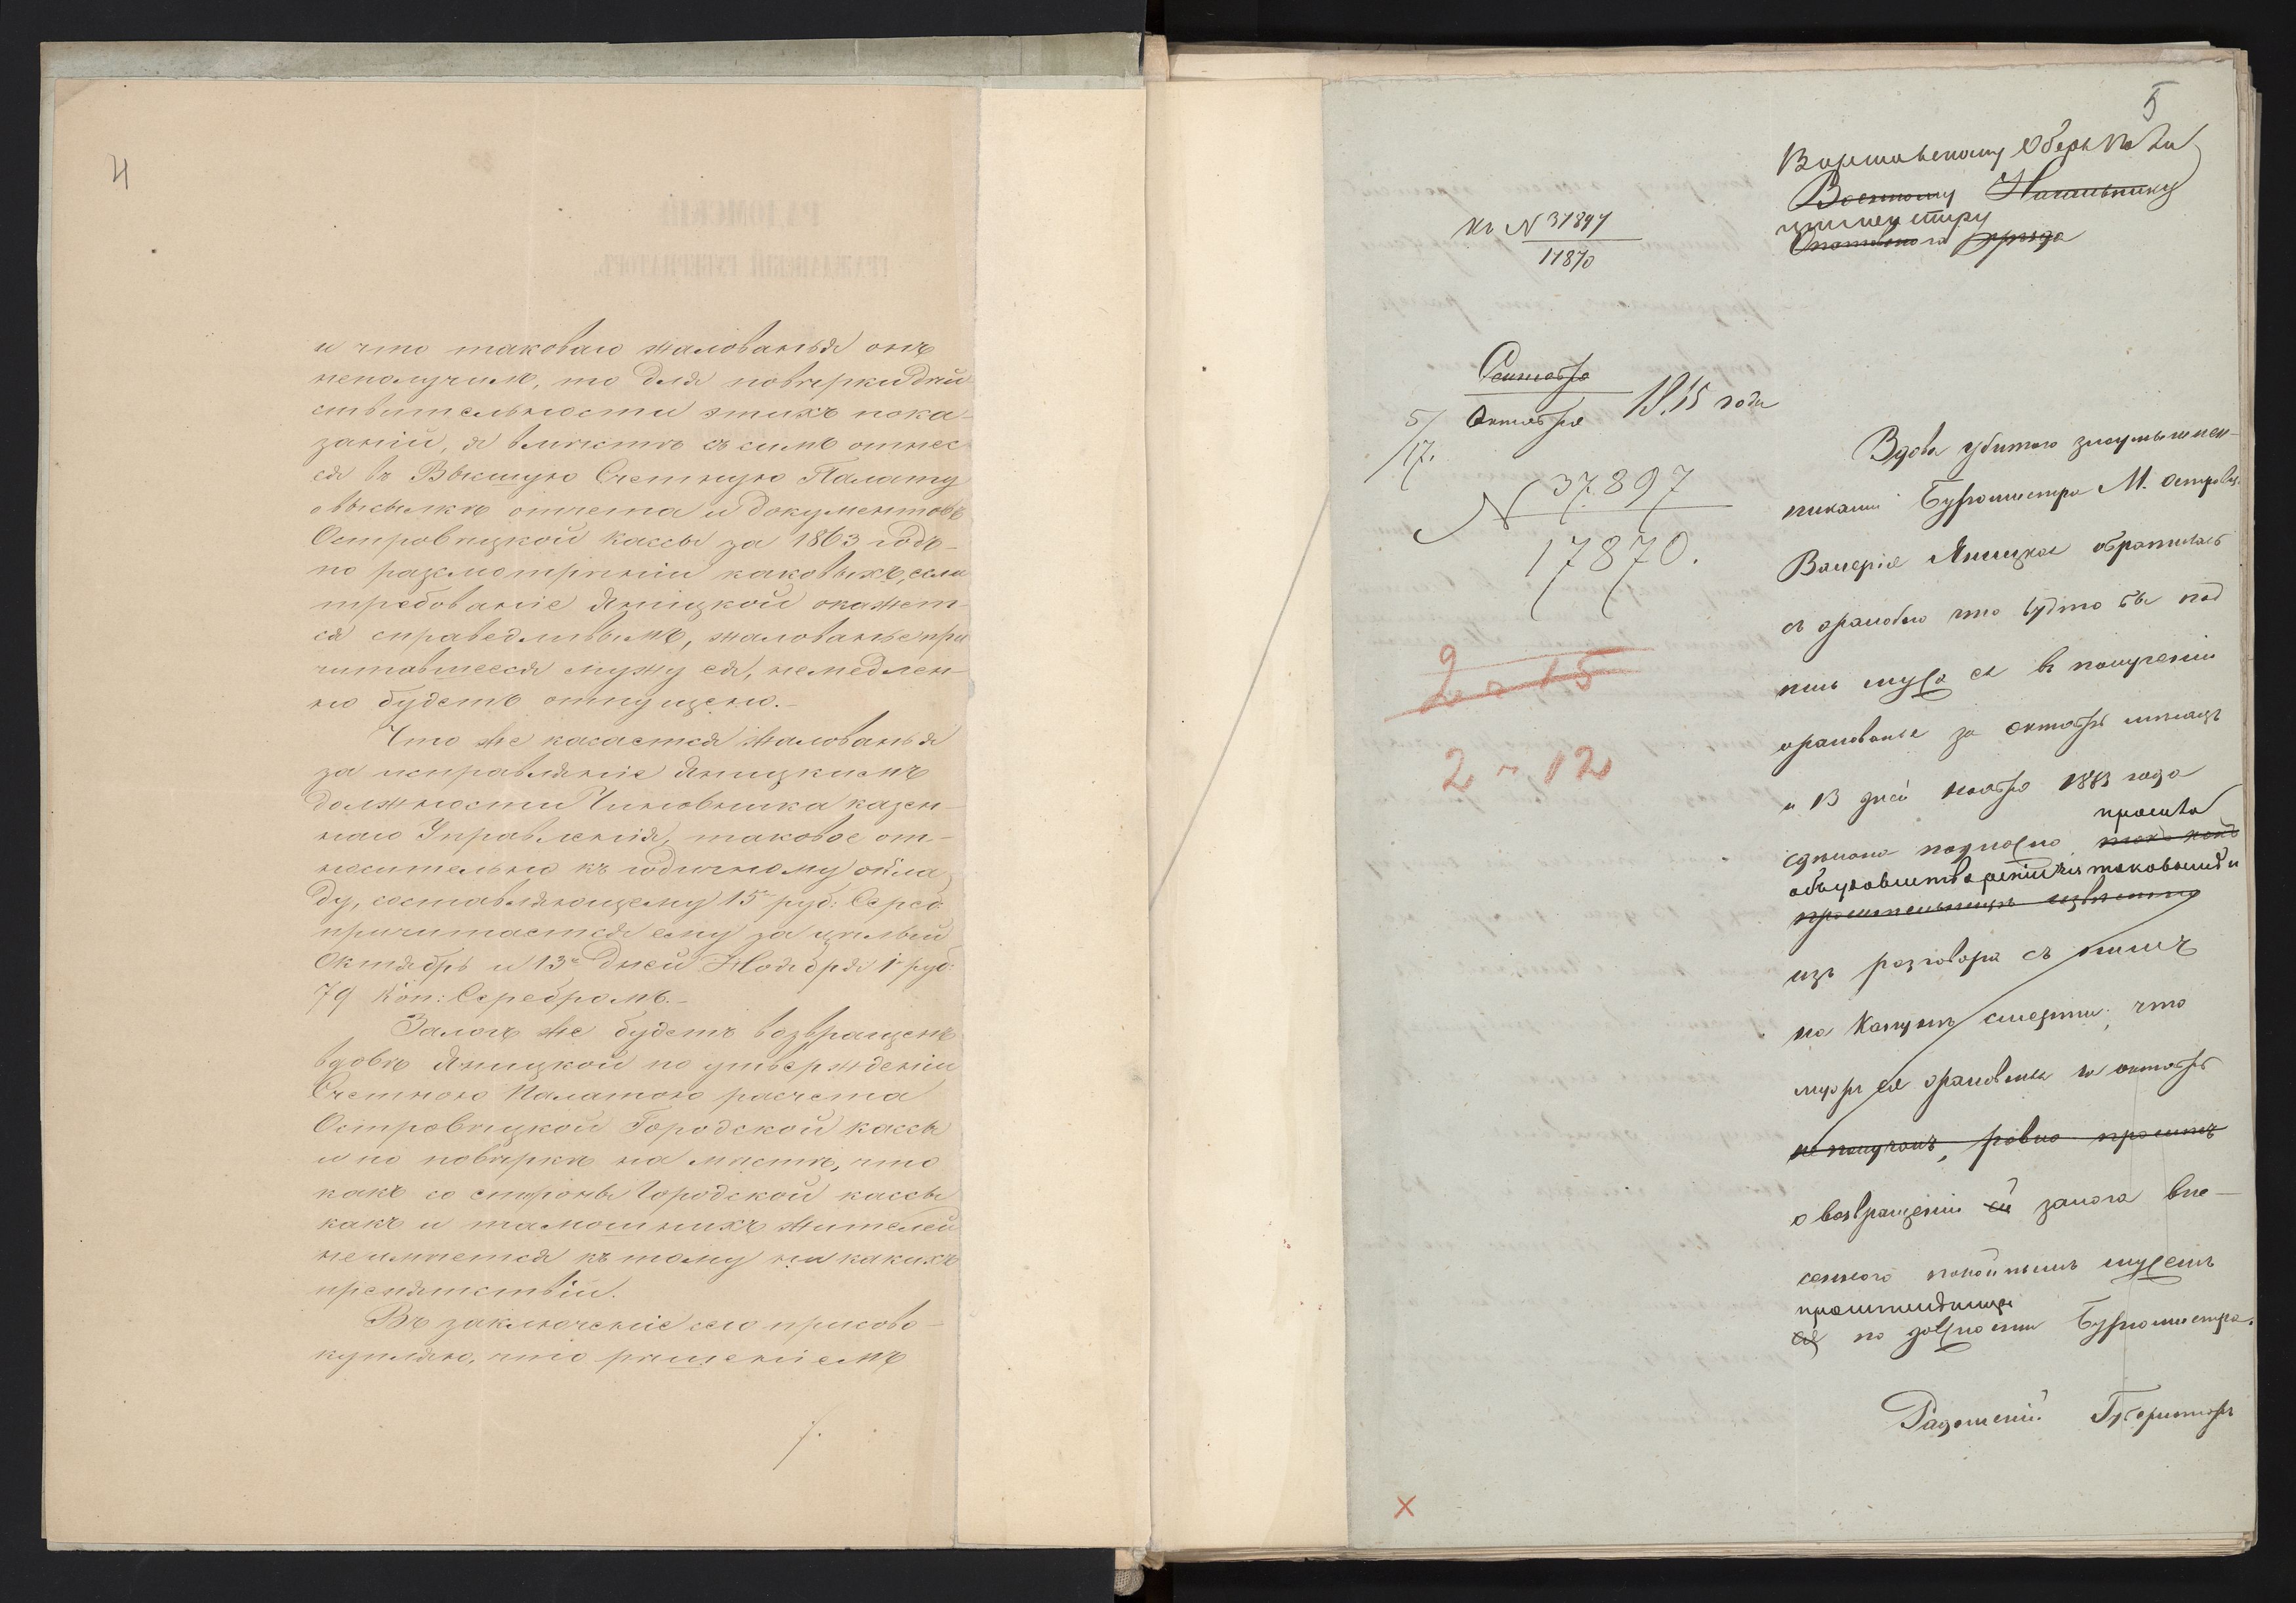 4
и что таковаго жалованья онъ
неполучилъ, то для повѣрки дѣй
ствительности этихъ пока-
заній, я вмѣстѣ съ симъ отнес
ся въ Высшую Счетную Палату
о высылкѣ отчета и документовъ
Островецкой кассы за 1863 годъ-
по разсмотрѣніи каковыхъ, если
требованіе Яницкой окажет-
ся справедливымъ, жалованье при
читавшееся мужу ея, немедлен-
но будетъ отпущено.-
Что же касается жалованья
за исправленіе Яницкимъ
должности Чиновника казен-
наго Управленія, таковое от-
носительно къ годичному окла
ду, составляющему 15 руб: Сереб:
причитается ему за цѣлый
Октябрь и 13 дней Ноября 1 руб:
79 Коп: Серебромъ.-
Залогъ же будетъ возвращенъ
вдовѣ Яницкой по утвержденіи
Счетною Палатою расчета
Островецкой Городской кассы
и по повѣркѣ на мѣстѣ, что
какъ со стороны Городской кассы
какъ и тамошнихъ жителей
неимѣется къ тому ни какихъ
препятствій.
Въ заключеніе сего присово-
купляю, что рѣшеніемъ
5
Варшавскому Оберъ По ли
Военному Начальнику
цмейстеру
Опатовскаго уѣзда
Къ N 37897
17870
Сентября
5/17. Октября 1865 года
N 37897
17870.
2 r 15
2 r 12
Вдова убитаго злоумышлен-
никами Бургомистра М. Островца
Валерія Яницкая обратилась
съ жалобою что будто бы под
пись мужа ея въ полученіи
жалованья за октябрь мѣсяцъ
и 13 дней ноября 1863 года
проситъ
сдѣлана подложно
объ удовлетвореніи ея таковымъ и
просительницѣ извѣстно
изъ разговора съ нимъ
на канунѣ смерти, что
мужъ ея жалованья за октябрь
не получалъ, равно проситъ
о возвращеніи ей залога вне-
сеннаго покойнымъ мужемъ
просительницы
ея по должности Бургомистра.
Радомскій Губернаторъ